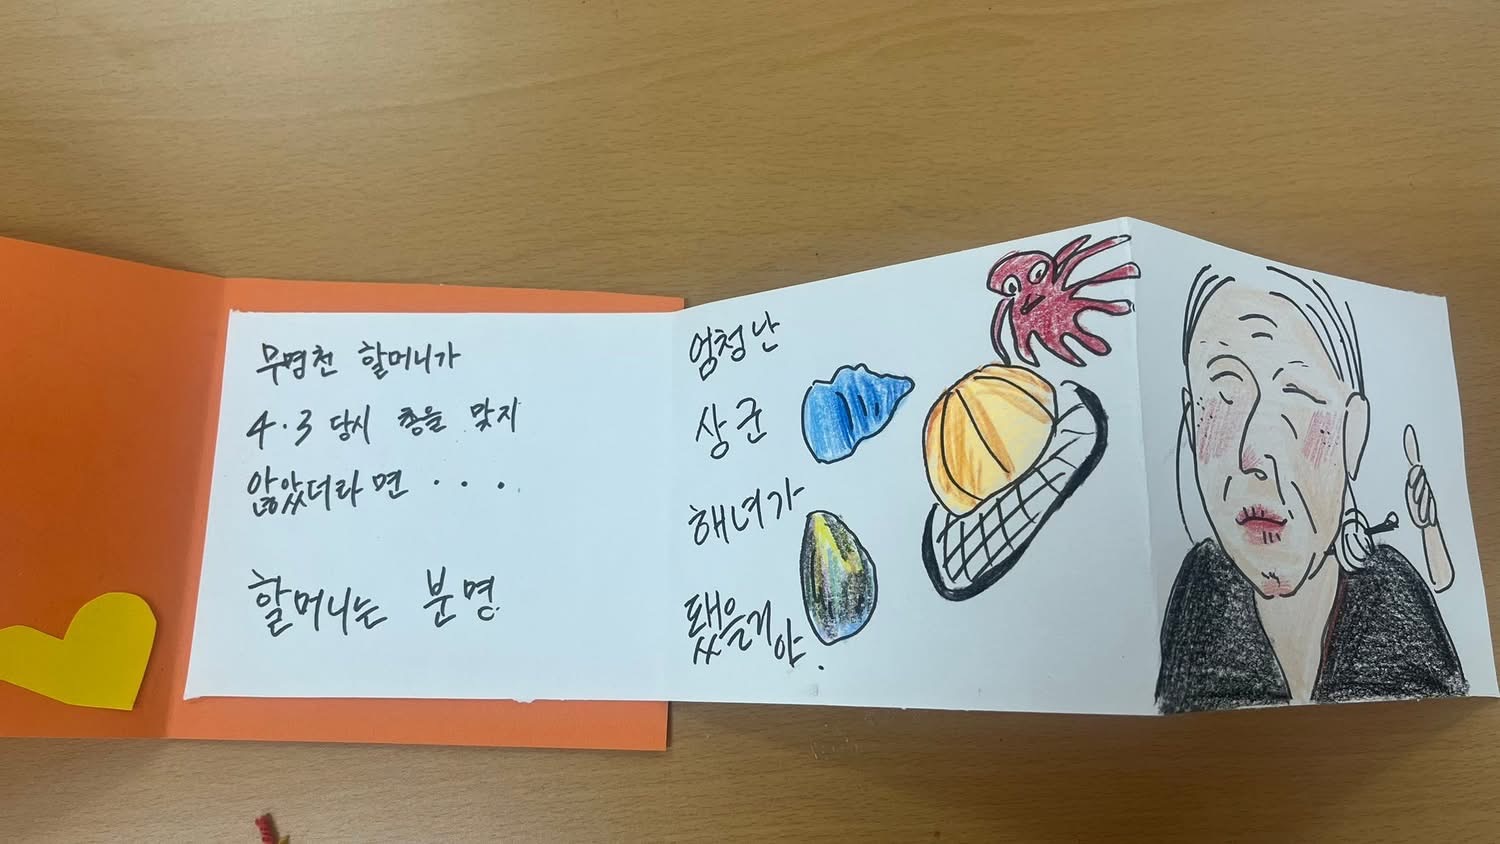 무명천 할머니가
4.3 당시 총을 맞지
않았더라면 . . .
할머니는 분명
엄청난
상군
해녀가
됐을거야.